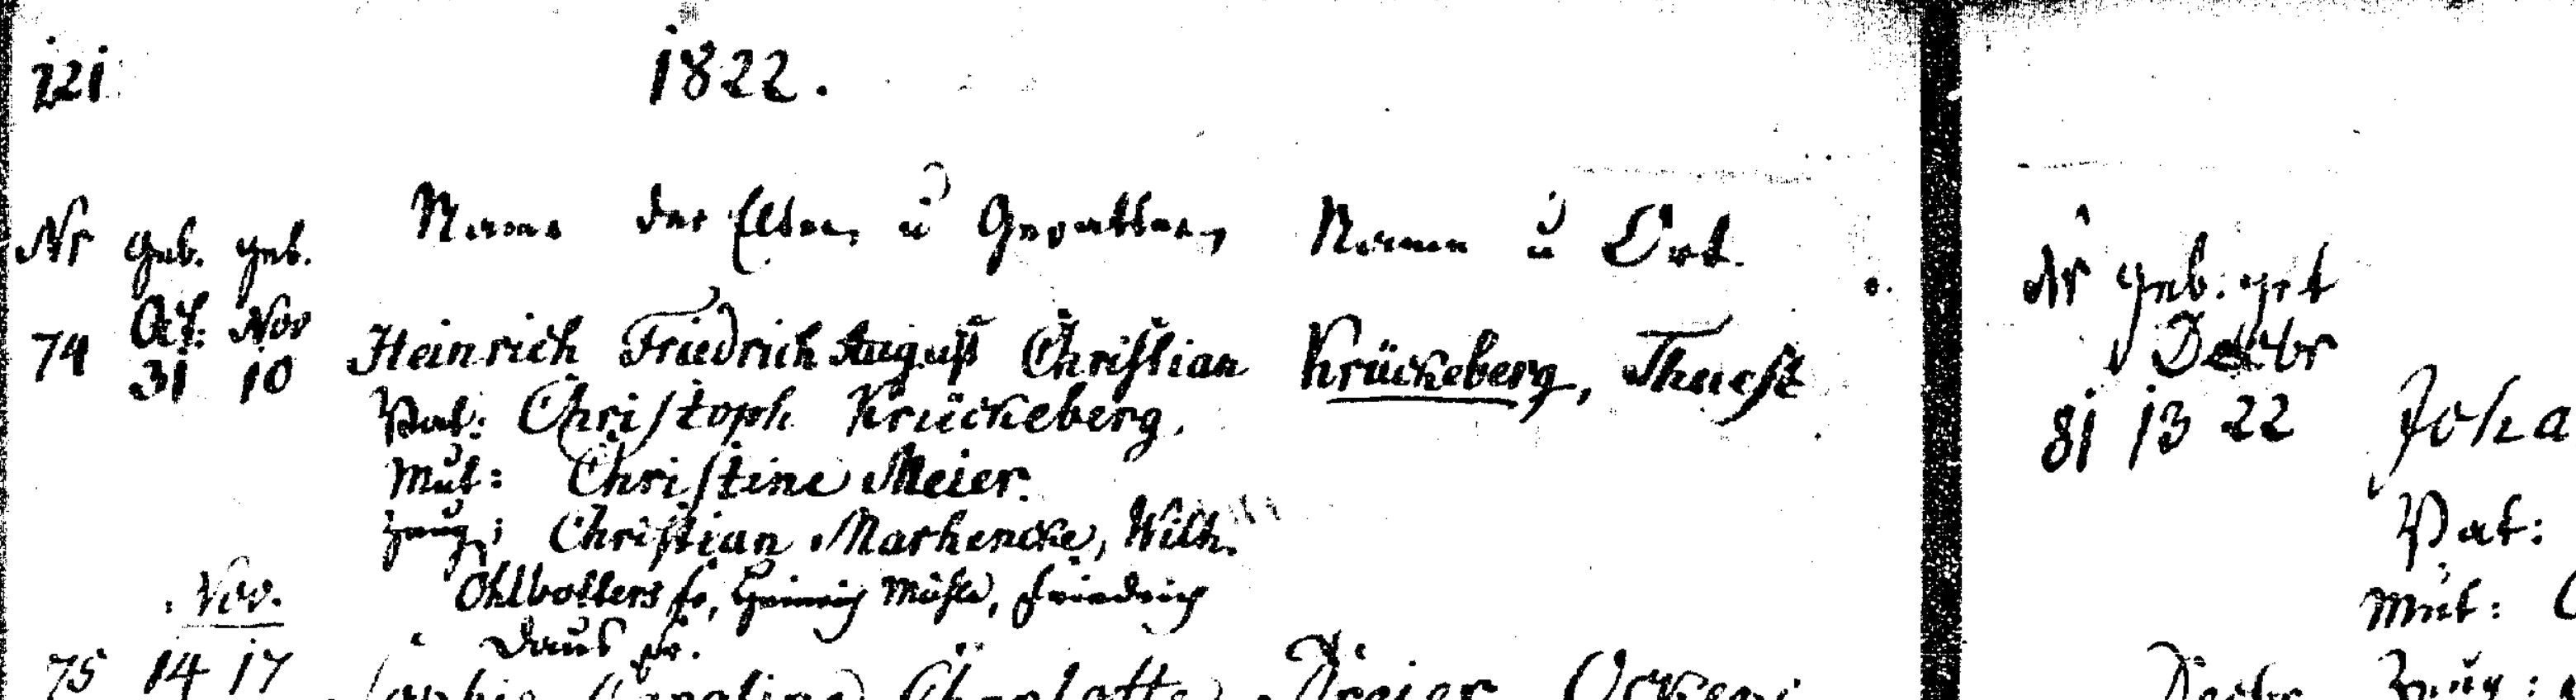 221
1822.
Nr geb. get. Name der Eltern u Gevattern Namen u Ort.
Oct: Nov
74 31 10 Heinrich Friedrich August Christian Krückeberg, Thuest
Vat: Christoph Krückeberg.
Mut: Christine Meier.
Zeug: Christian Marhencke, Wilh.
Ohlvotters fr, Heinrich Mühle, Friedrich
Nov.
Daus fr.
75 14 17 Sophie Caroline Charlotte Dreier
Nr geb: get
Decbr
81 13 22 Joha
Vat:
Mut:
Decbr Zeug: